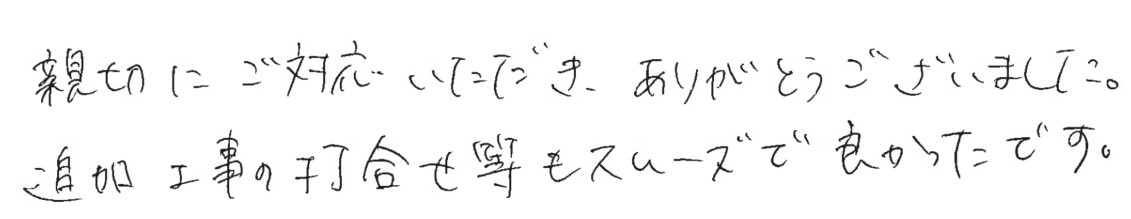 親切にご対応いただき、ありがとうございました。
追加工事の打合せ等もスムーズで良かったです。